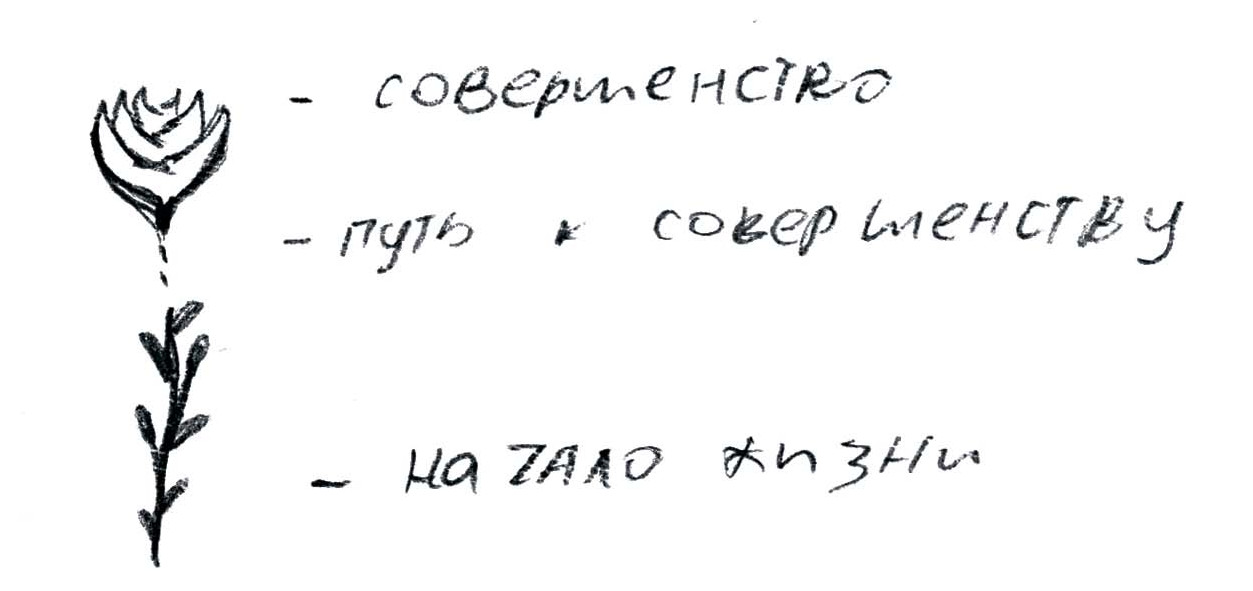 - совершенство
- путь к совершенству
- начало жизни